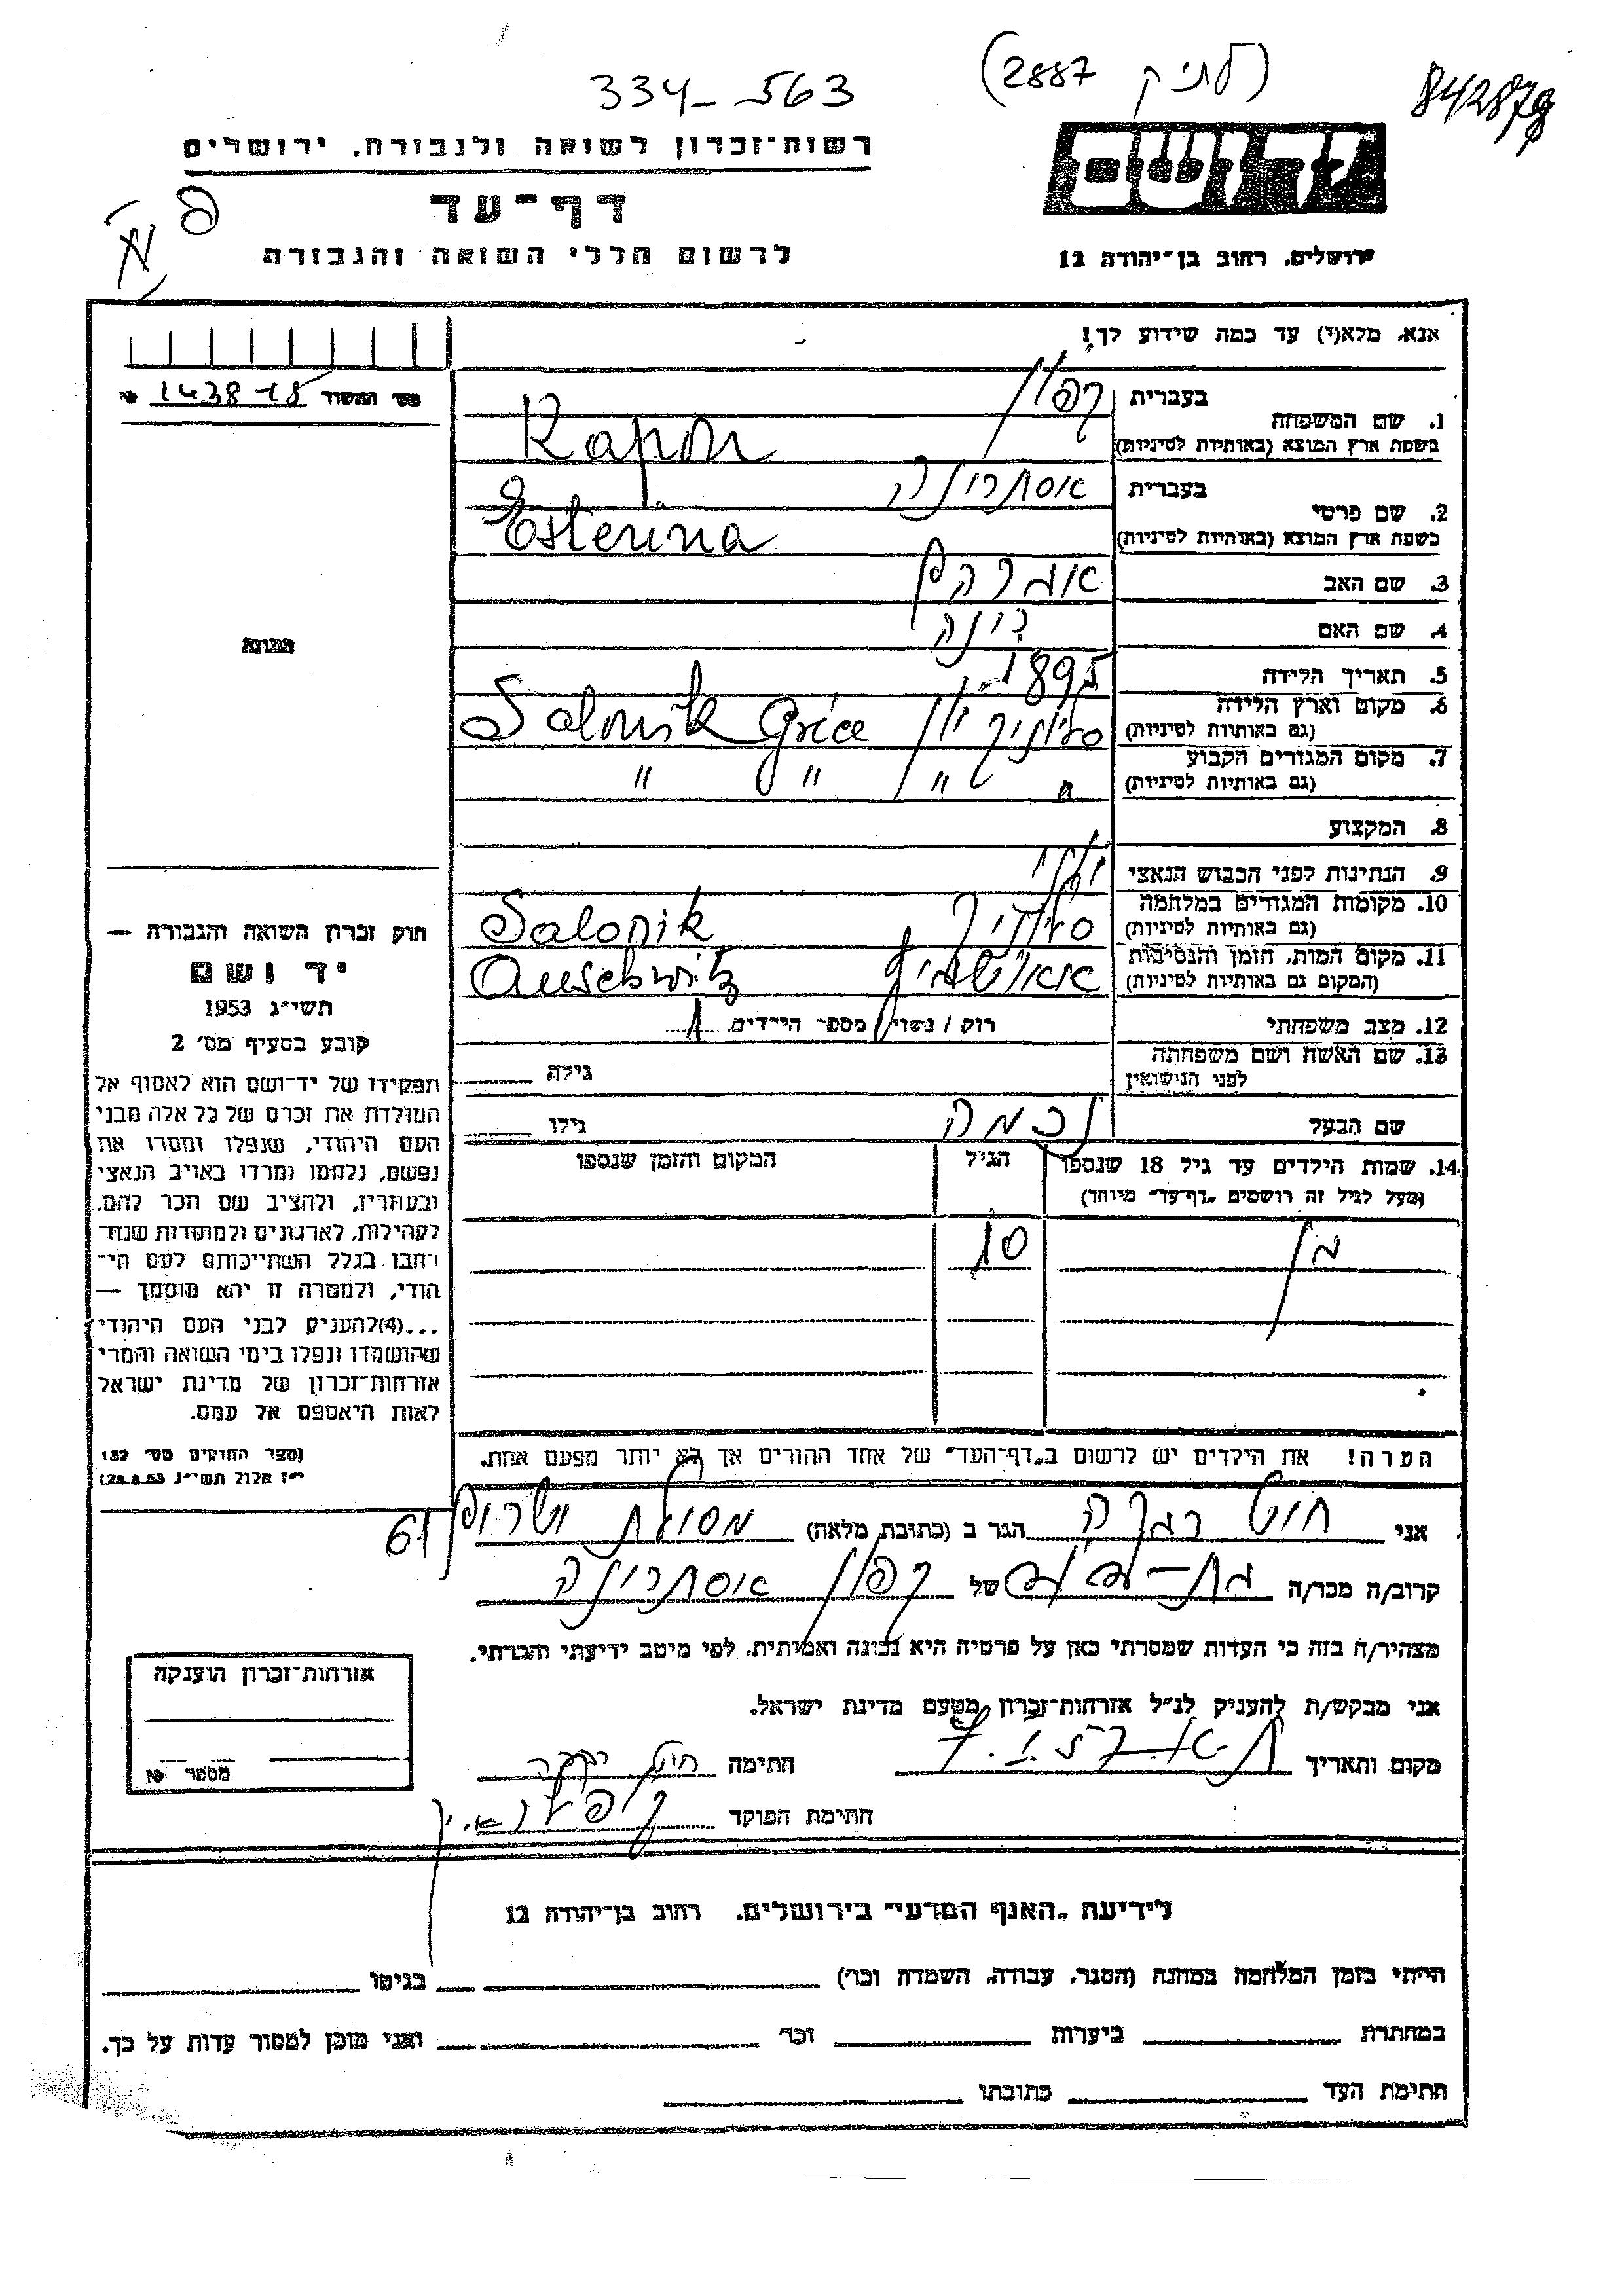 334-563
(לתיק 2887)
842879
רשות־זכרון לשואה ולגבורה, ירושלים
דף־עד
לרשום חללי השואה והגבורה
ידושם
ירושלים, רחוב בן־יהודה 12
אנא, מלא(י) עד כמה שידוע לך!
מס׳ המשור 1438-18
1. שם המשפחה בעברית קפון
בשפת ארץ המוצא (באותיות לטיניות) Kapon
2. שם פרטי בעברית אסתרינה
בשפת ארץ המוצא (באותיות לטיניות) Esterina
3. שם האב אברהם
4. שם האם
5. תאריך הלידה 1895
6. מקום וארץ הלידה סלוניק יון Salonik Grèce
(גם באותיות לטיניות)
7. מקום המגורים הקבוע " " " "
(גם באותיות לטיניות)
8. המקצוע
9. הנתינות לפני הכבוש הנאצי
10. מקומות המגורים במלחמה סלוניק Salonik
(גם באותיות לטיניות)
11. מקום המות, הזמן והנסיבות אאושוויץ Auschwitz
(המקום גם באותיות לטיניות)
12. מצב משפחתי רווק / נשוי / מספר הילדים 1
13. שם האשה ושם משפחתה
לפני הנישואין גילה
שם הבעל נחמה גילו
14. שמות הילדים עד גיל 18 שנספו הגיל המקום והזמן שנספו
(מעל לגיל זה רושמים „דף־עד״ מיוחד)
10
הערה! את הילדים יש לרשום ב„דף־העד״ של אחד ההורים אך לא יותר מפעם אחת.
תמונה
חוק זכרון השואה והגבורה —
יד ושם
תשי״ג 1953
קובע בסעיף מס׳ 2
תפקידו של יד־ושם הוא לאסוף אל
המולדת את זכרם של כל אלה מבני
העם היהודי, שנפלו ומסרו את
נפשם, נלחמו ומרדו באויב הנאצי
ובעוזריו, ולהציב שם וזכר להם,
לקהילות, לארגונים ולמוסדות שנח־
רבו בגלל השתייכותם לעם הי־
הודי, ולמטרה זו יהא מוסמך —
...(4)להעניק לבני העם היהודי
שהושמדו ונפלו בימי השואה והמרי
אזרחות־זכרון של מדינת ישראל
לאות היאספם אל עמם.
(ספר החוקים מס׳ 132
י״ז אלול תשי״ג 28.8.53)
אני חוט רבקה הגר ב (כתובת מלאה)
61
קרוב/ה מכר/ה בת־דודה של קפון אסתרינה
מצהיר/ה בזה כי העדות שמסרתי כאן על פרטיה היא נכונה ואמיתית, לפי מיטב ידיעתי והכרתי.
אני מבקש/ת להעניק לנ״ל אזרחות־זכרון מטעם מדינת ישראל.
מקום ותאריך חתימה חוט רבקה
חתימת הפוקד
אזרחות־זכרון הוענקה
מספר
לידיעת „האגף המדעי״ בירושלים, רחוב בן־יהודה 12
הייתי בזמן המלחמה במחנה (הסגר, עבודה, השמדה וכו׳) בגיטו
במחתרת ביערות וכו׳ ואני מוכן למסור עדות על כך.
חתימת העד כתובתו